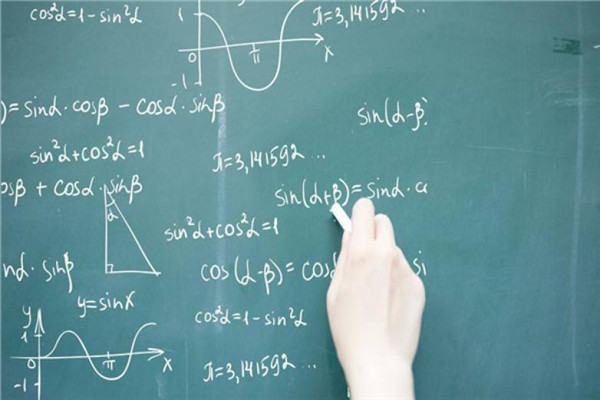 cos²α=1-sin²α
1
0
π
x
-1
π=3,141592 ...
)=sinα·cosβ-cosα·sinβ
sin(α-β)
sin²α+cos²α=1
π=3,141592 ...
osβ+cosα·sinβ
sin(α+β)=sinα·c
α
sin²α+cos²α=1
nα·sinβ
cos(α-β)=cosα si
y=sinx
y
1
0
π
x
-1
cos²α=1-sin²α
π=3,141592 ...